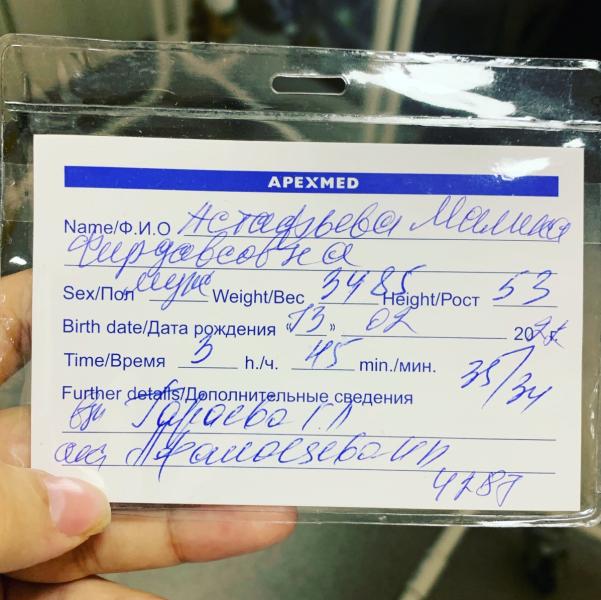 APEXMED
Name/Ф.И.О Астафьева Малика
Фирдавсовна
Sex/Пол муж Weight/Вес 3485 Height/Рост 53
Birth date/Дата рождения «13» 02 202
Time/Время 3 h./ч. 45 min./мин. 35/34
Further details/Дополнительные сведения
Гараева Г.Л